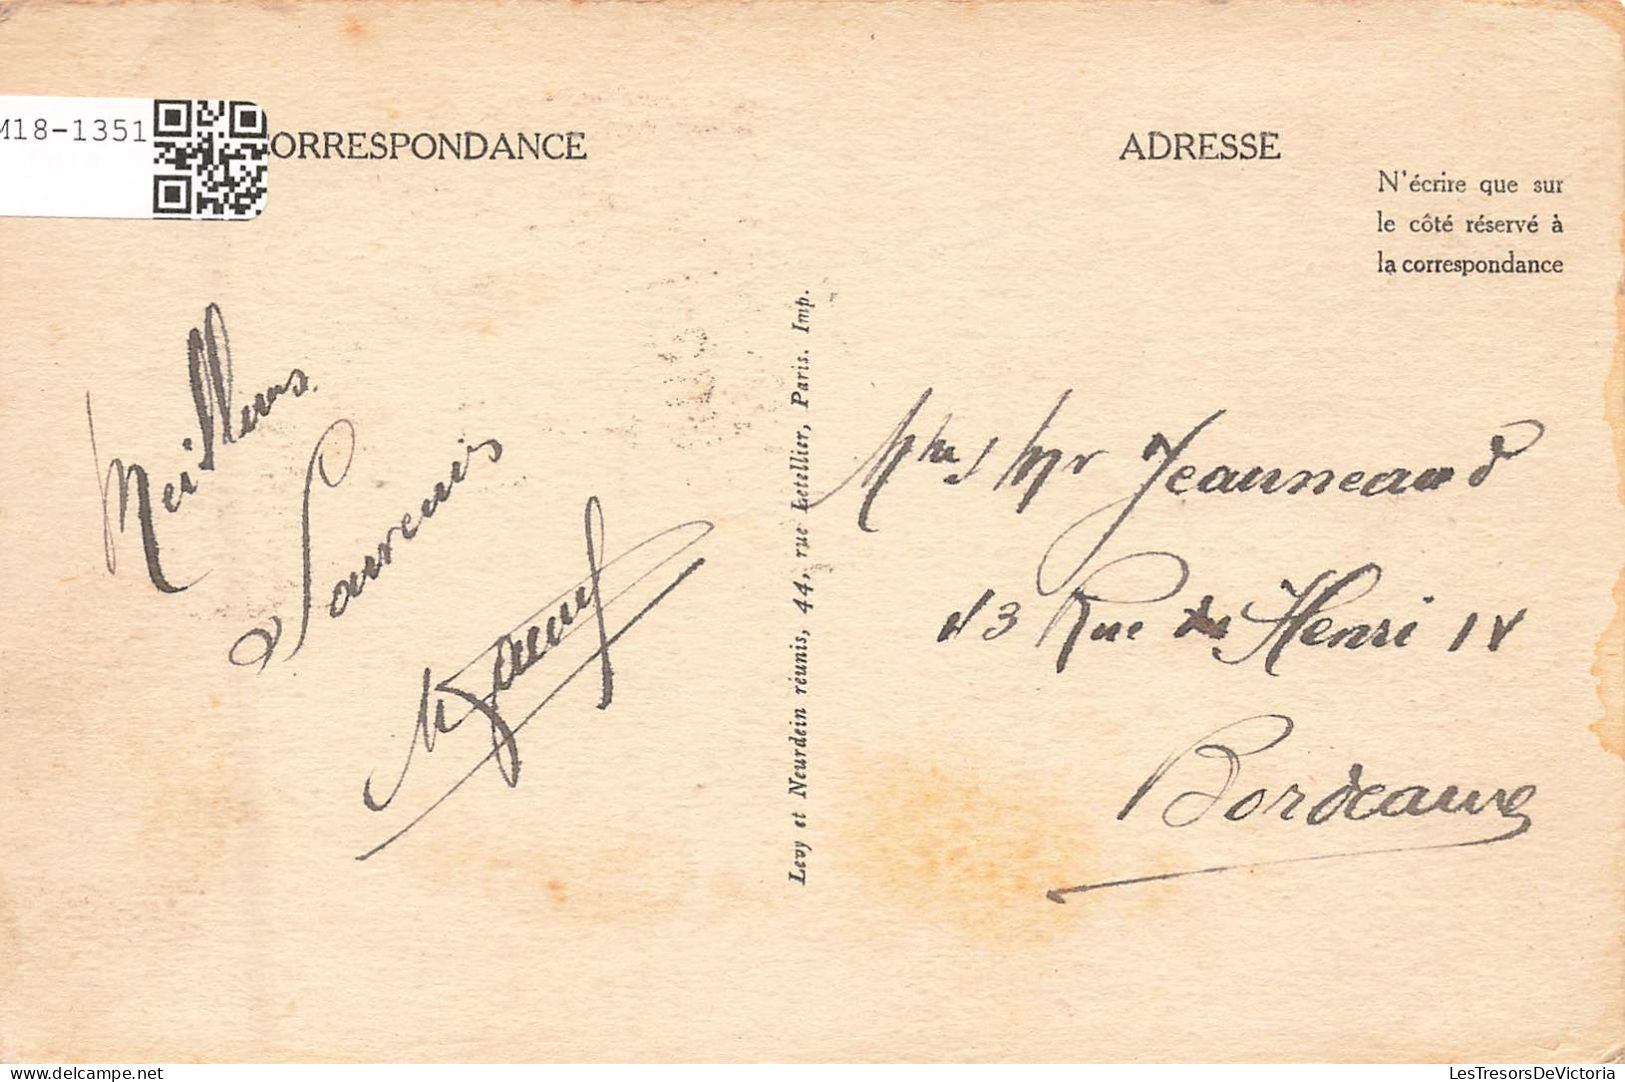 M18-1351
CORRESPONDANCE
ADRESSE
N'écrire que sur
le côté réservé à
la correspondance
Meilleurs
Souvenirs
Levy et Neurdein réunis, 44, rue Letellier, Paris. Imp.
Mr Jeanneaud
13 Rue Henri IV
Bordeaux
LesTresorsDeVictoria